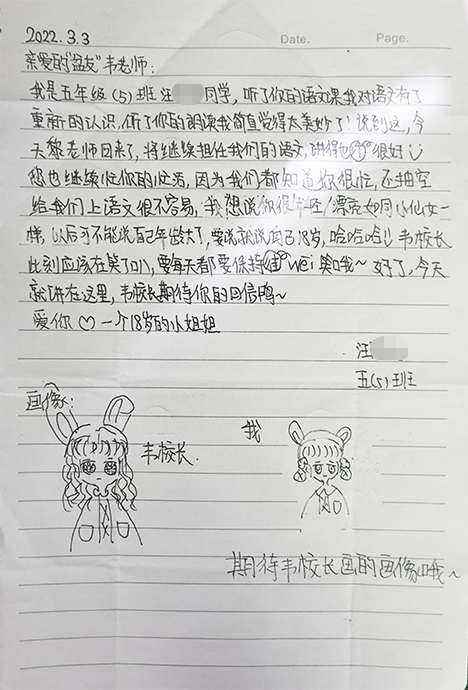 2022.3.3
Date.
Page.
亲爱的"盆友"韦老师:
我是五年级(5)班汪同学,听了你的语文课我对语文有了
重新的认识,听了你的朗读我简直觉得太美妙了!说到这,今
天黎老师回来了,将继续担任我们的语文,讲得也很好
您也继续忙你的忙活,因为我们都知道你很忙,还抽空
给我们上语文很不容易,我想说你很年轻/漂亮如同小仙女一
样,以后可不能说自己年龄大了,要说就说自己18岁,哈哈哈!韦校长
此刻应该在笑了叭,要每天都要保持wei笑哦~好了,今天
就讲在这里,韦校长期待你的回信鸭~
爱你♡一个18岁的小姐姐
汪
五(5)班
画像:
韦校长.
我
期待韦校长画的画像哦~